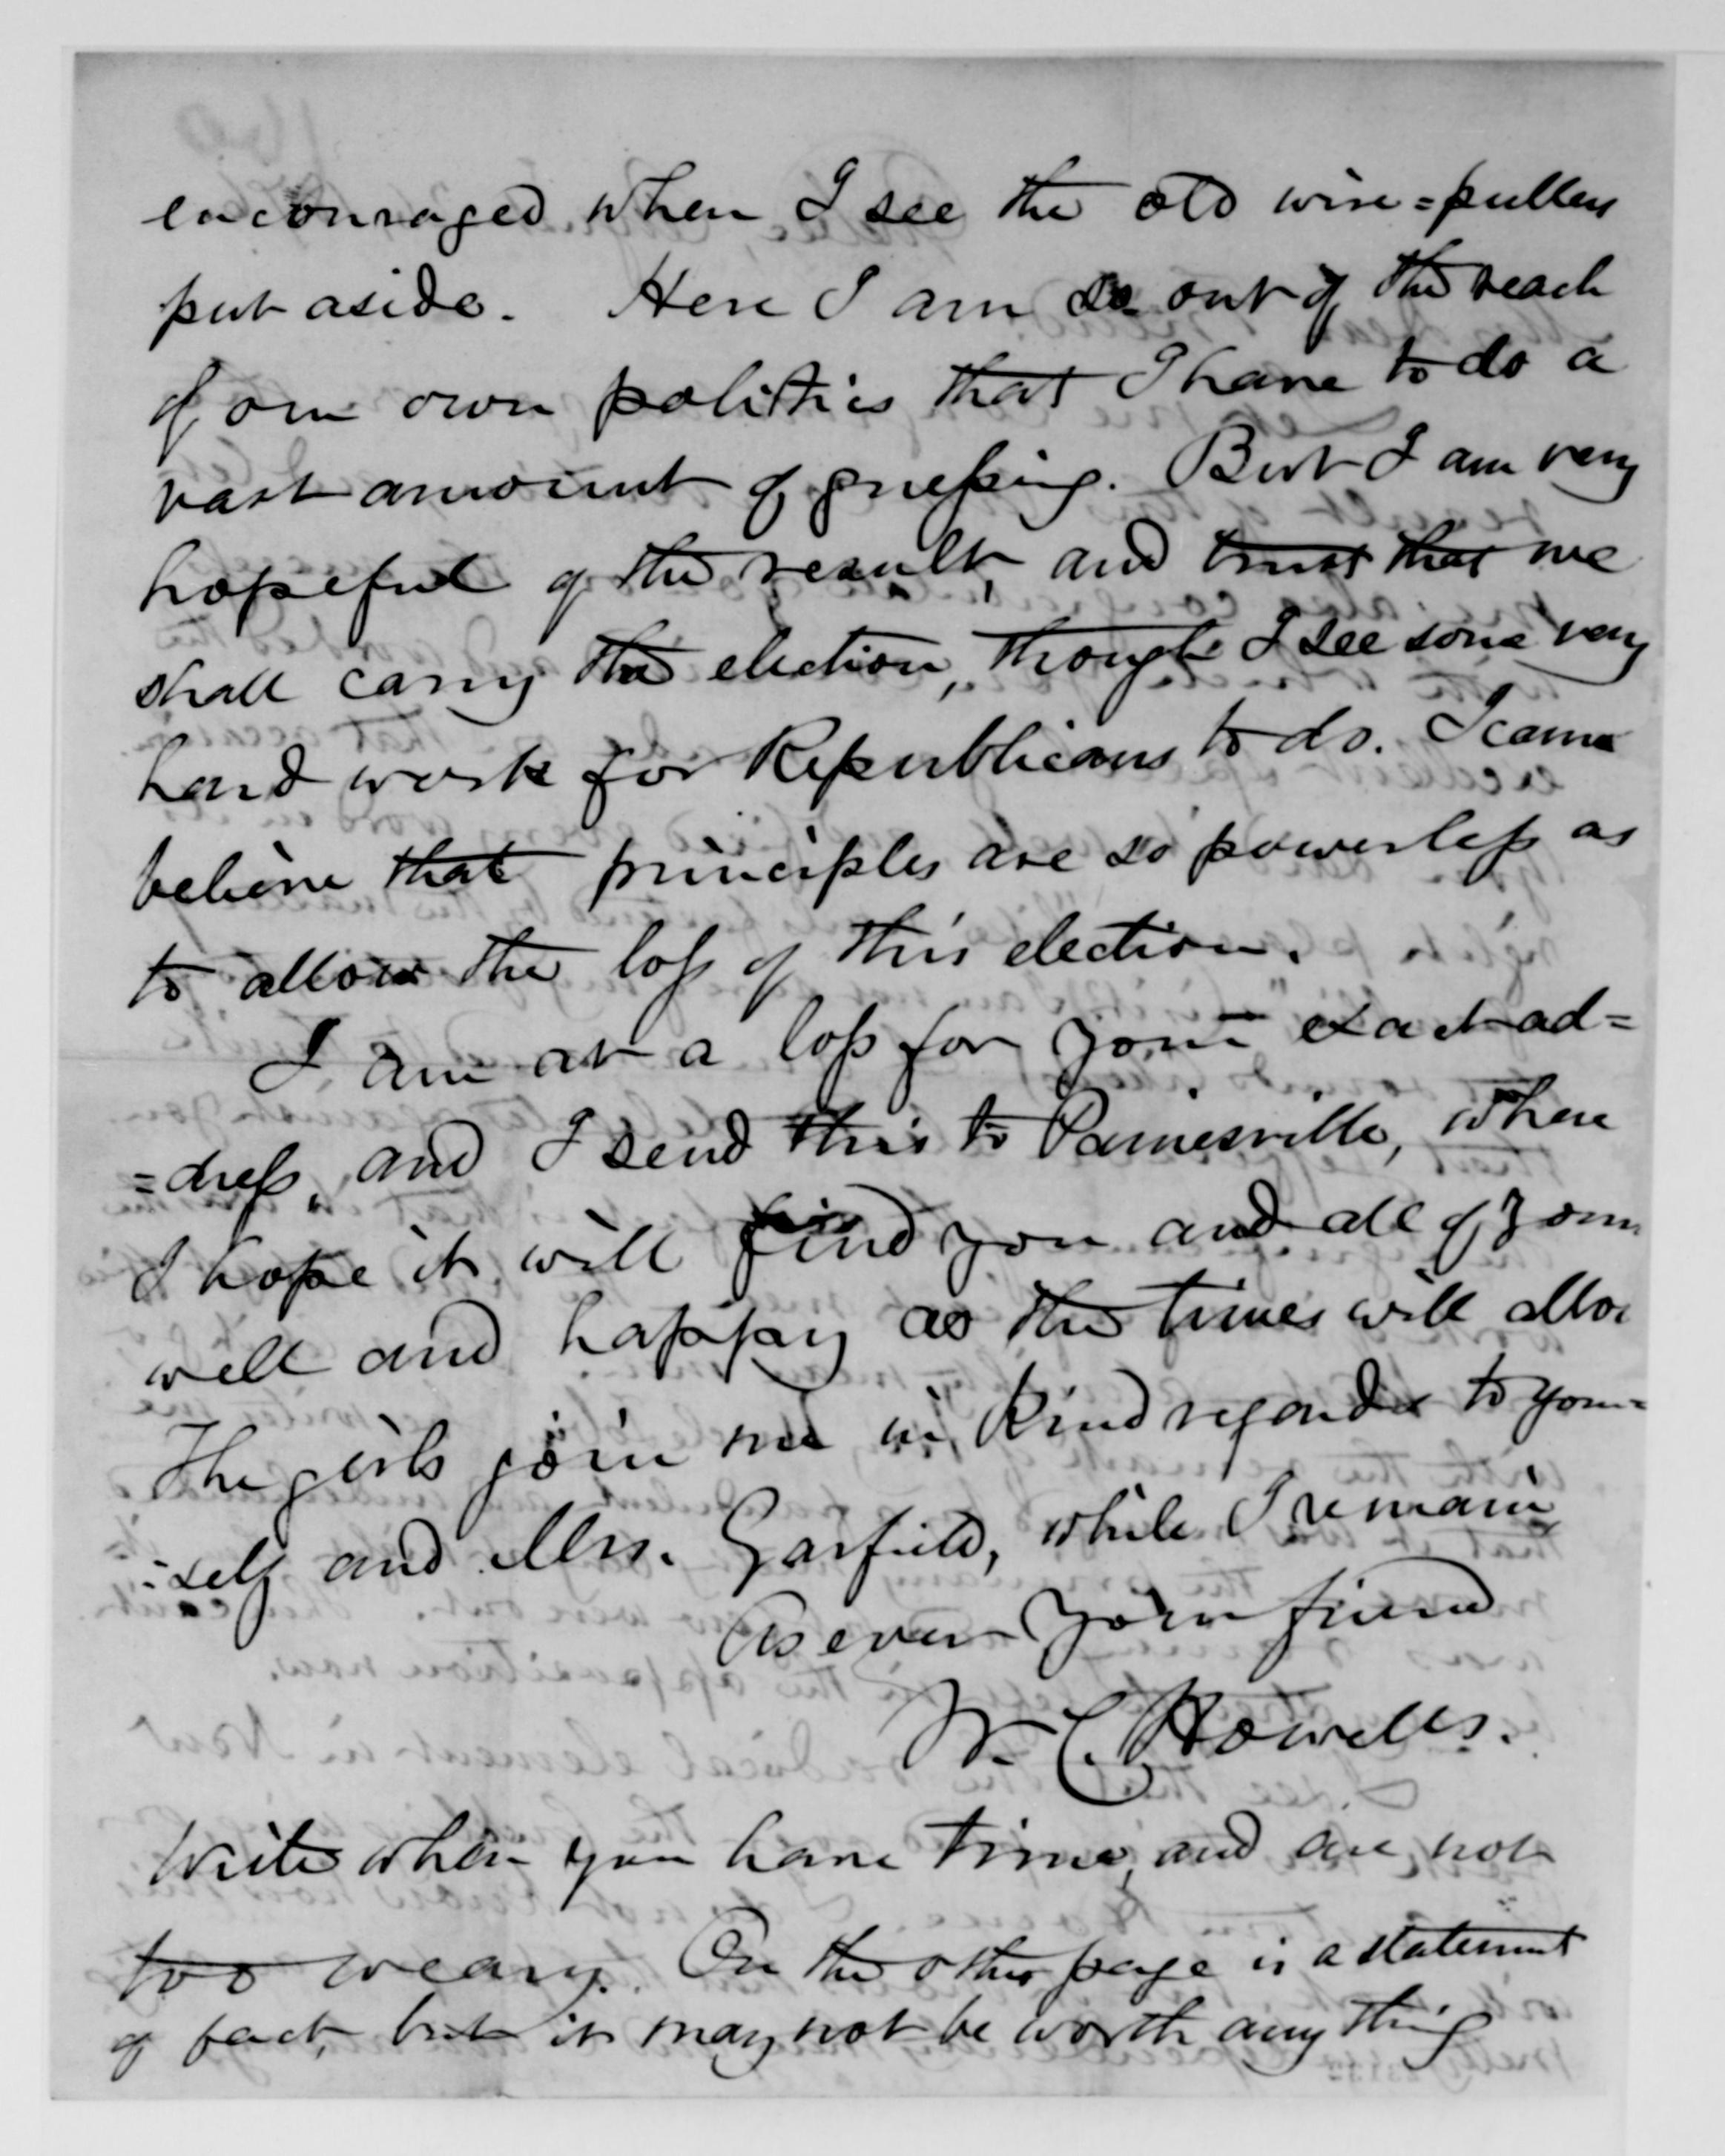 encouraged when I see the old wire=pullers
put aside. Here I am so out of the reach
of our own politics that I have to do a
vast amount of guessing. But I am very
hopeful of the result, and trust that we
shall carry the election, though I see some very
hard work for Republicans to do. I cant
believe that principles are so powerless as
to allow the loss of this election.
I am at a loss for your exact ad=
=dress, and I send this to Painesville, where
I hope it will find you and all of your
well and happy as the times will allow
The girls join me in kind regards to your=
=self and Mrs. Garfield, while I remain
As ever your friend
W. C. Howells.
Write when you have time and are not
too weary. On the other page is a statement
of fact, but it may not be worth any thing